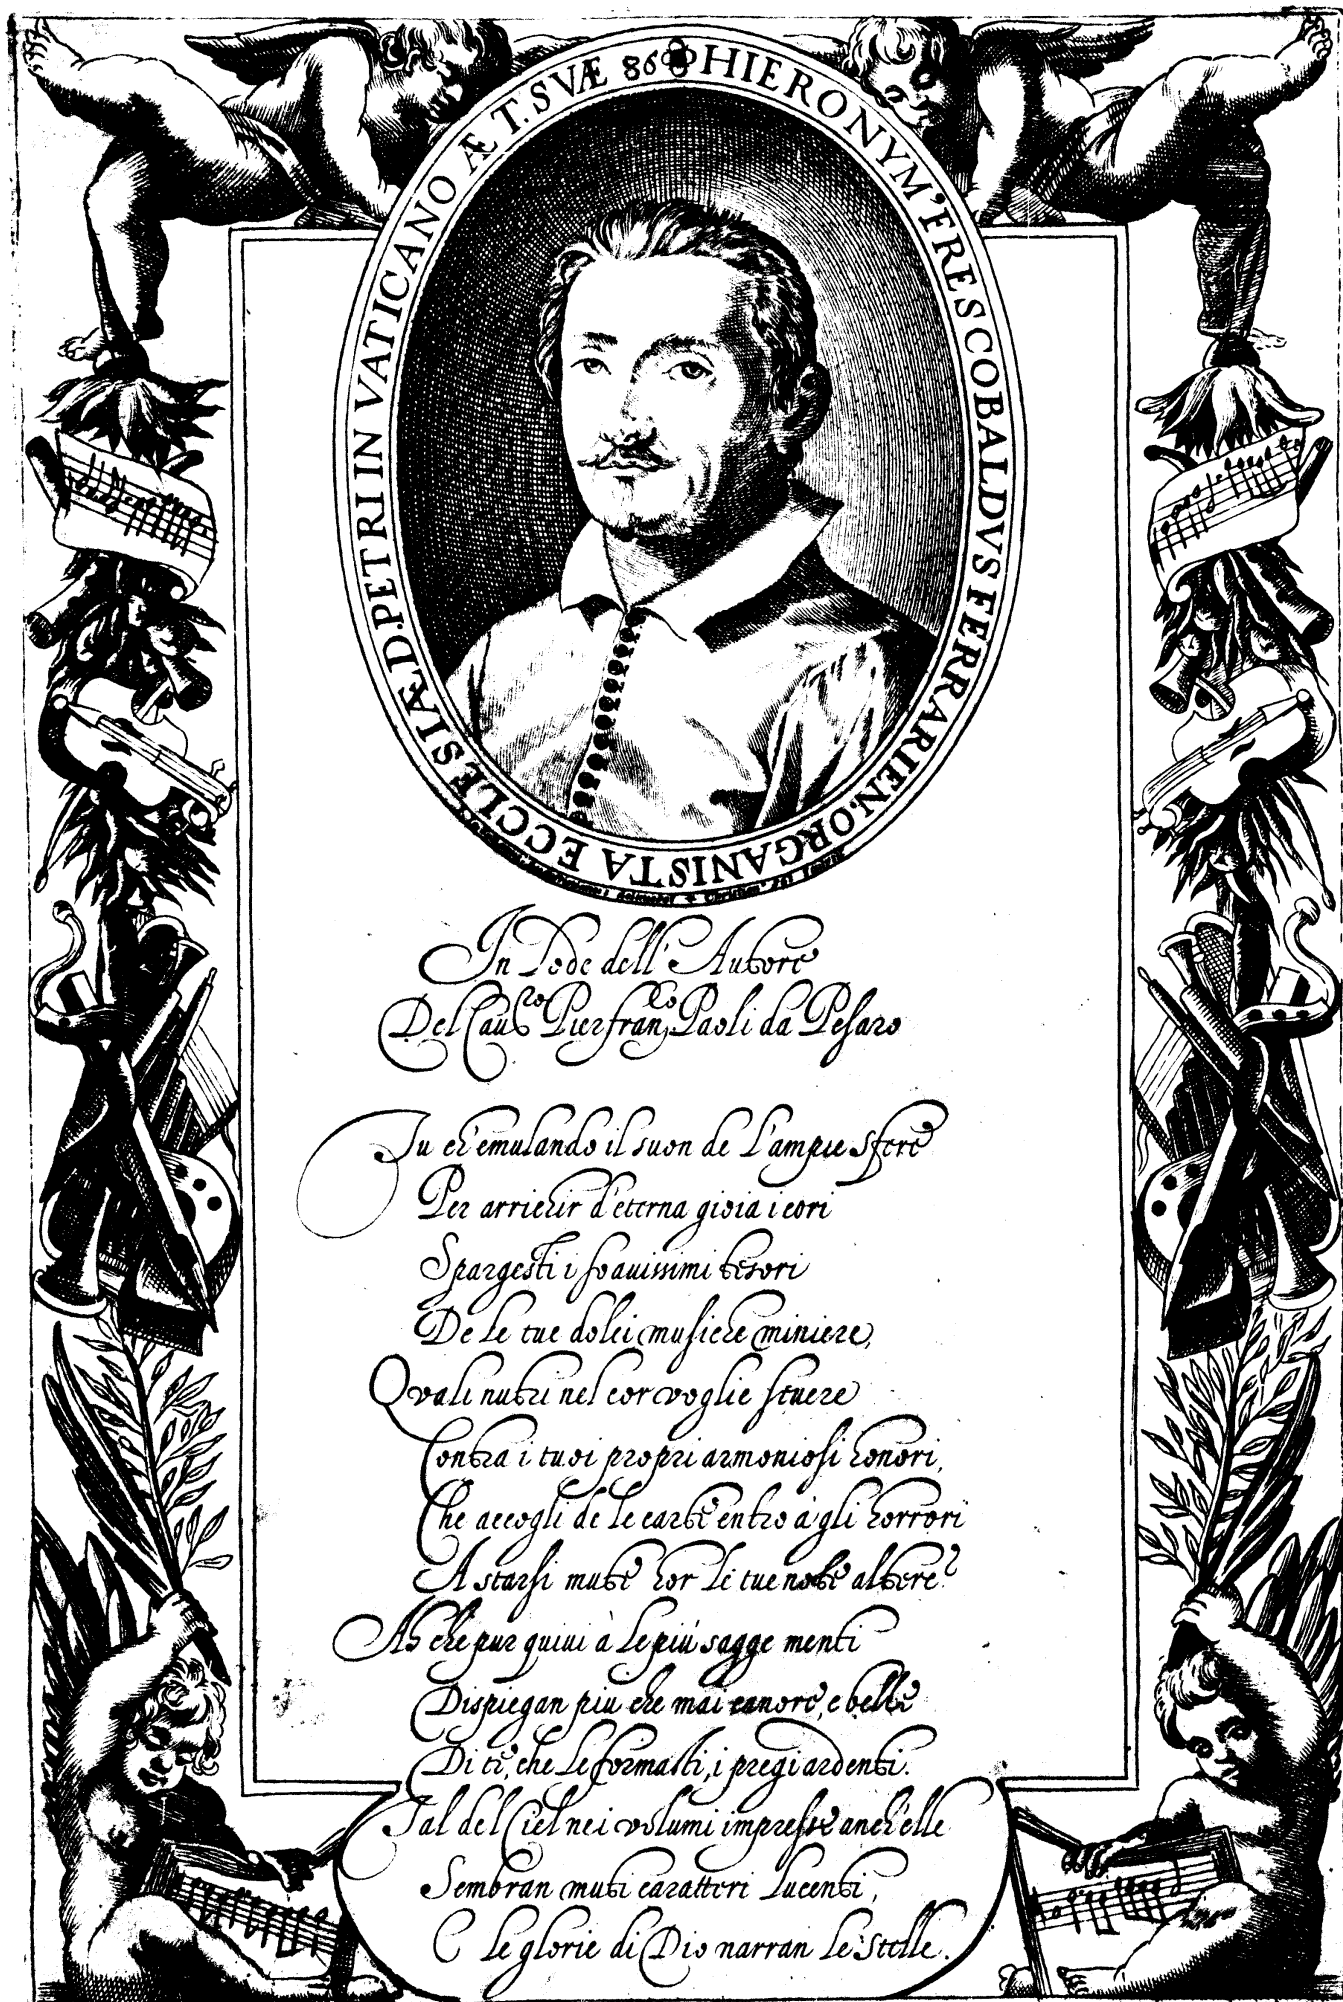 HIERONYM' FRESCOBALDVS FERRARIEN. ORGANISTA ECCLESIÆ. D. PETRI IN VATICANO ÆT. SVÆ 86
In Lode dell' Autore
Del Cau.ro Pierfran.co Paoli da Pesaro
Tu ch'emulando il suon de l'ampie sfere
Per arrichir d'eterna gioia i cori
Spargesti i soauissimi tesori
De le tue dolci musiche miniere,
Quali nutri nel cor voglie seuere
Contra i tuoi propri armoniosi honori,
Che accogli de le carte entro à gli horrori
A starsi mute hor le tue note altere?
Ah che pur quiui à le più sagge menti
Dispiegan piu che mai canore, e belle
Di te, che le formasti, i pregi ardenti.
Tal del Ciel nei volumi impresse anch'elle
Sembran muti caratteri lucenti,
E le glorie di Dio narran le stelle.